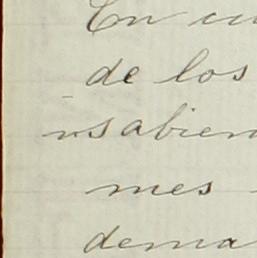 En cu
de los
nsabien
mes
dema